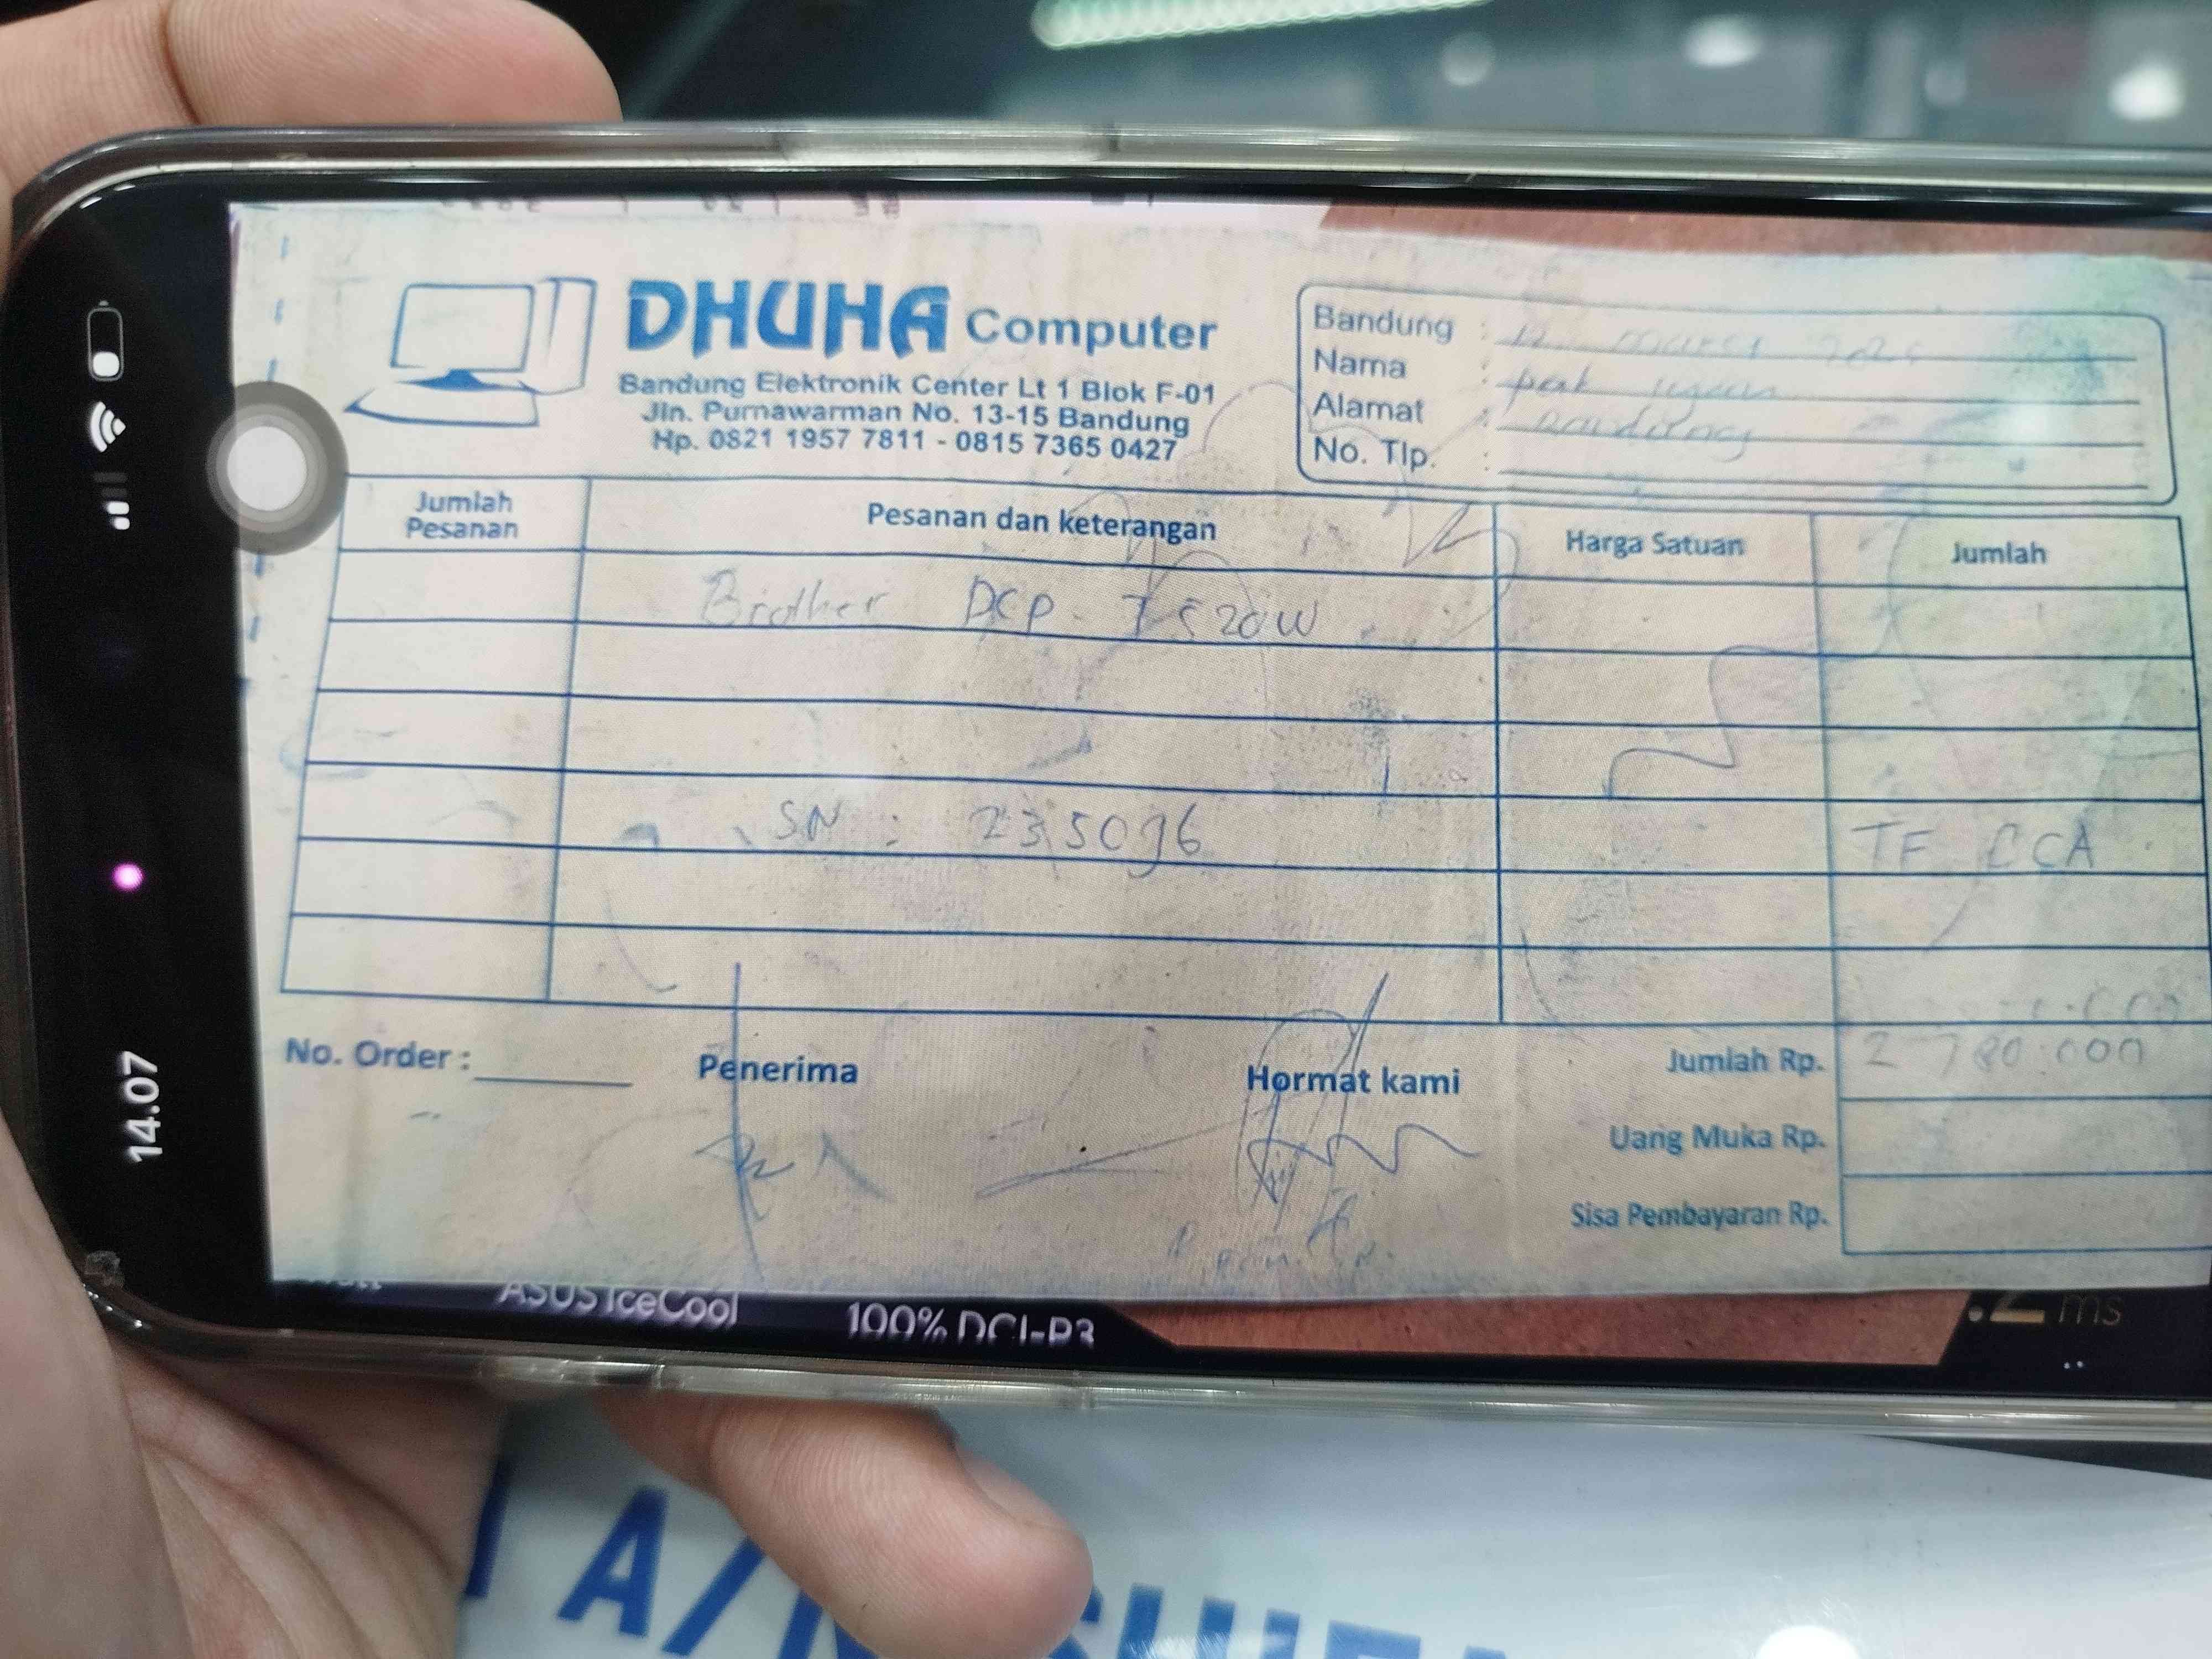 14.07
DHUHA Computer
Bandung Elektronik Center Lt 1 Blok F-01
Jln. Purnawarman No. 13-15 Bandung
Hp. 0821 1957 7811 - 0815 7365 0427
Bandung : 12 maret
Nama : pak
Alamat : Bandung
No. Tlp. :
Jumlah Pesanan
Pesanan dan keterangan
Harga Satuan
Jumlah
Brother DCP - T520W
SN : 235096
TF BCA
No. Order :
Penerima
Hormat kami
Jumlah Rp. 2 780.000
Uang Muka Rp.
Sisa Pembayaran Rp.
ASUS IceCool
100% DCI-P3
.2 ms